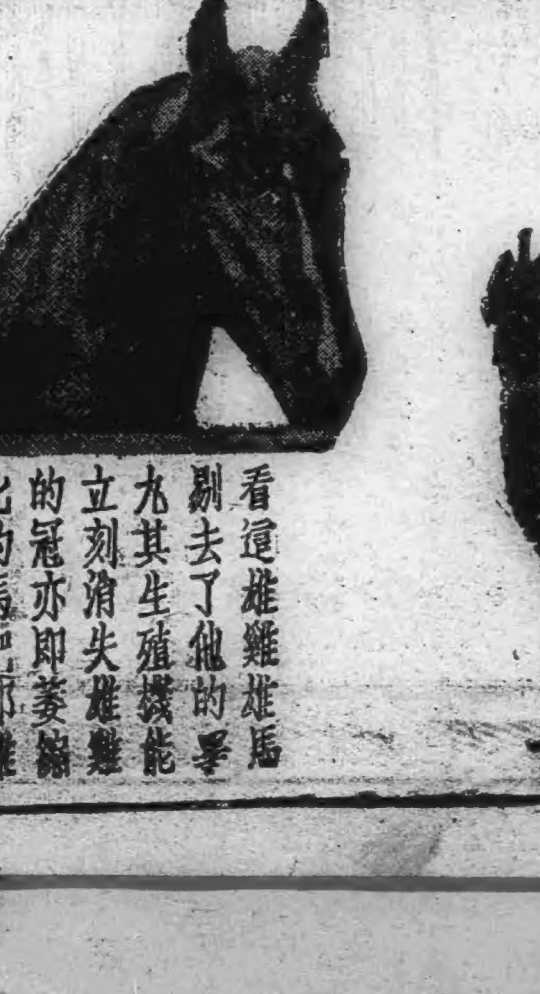 看這雄雞雄馬
剔去了他的睪
丸其生殖機能
立刻消失雄雞
的冠亦即萎縮